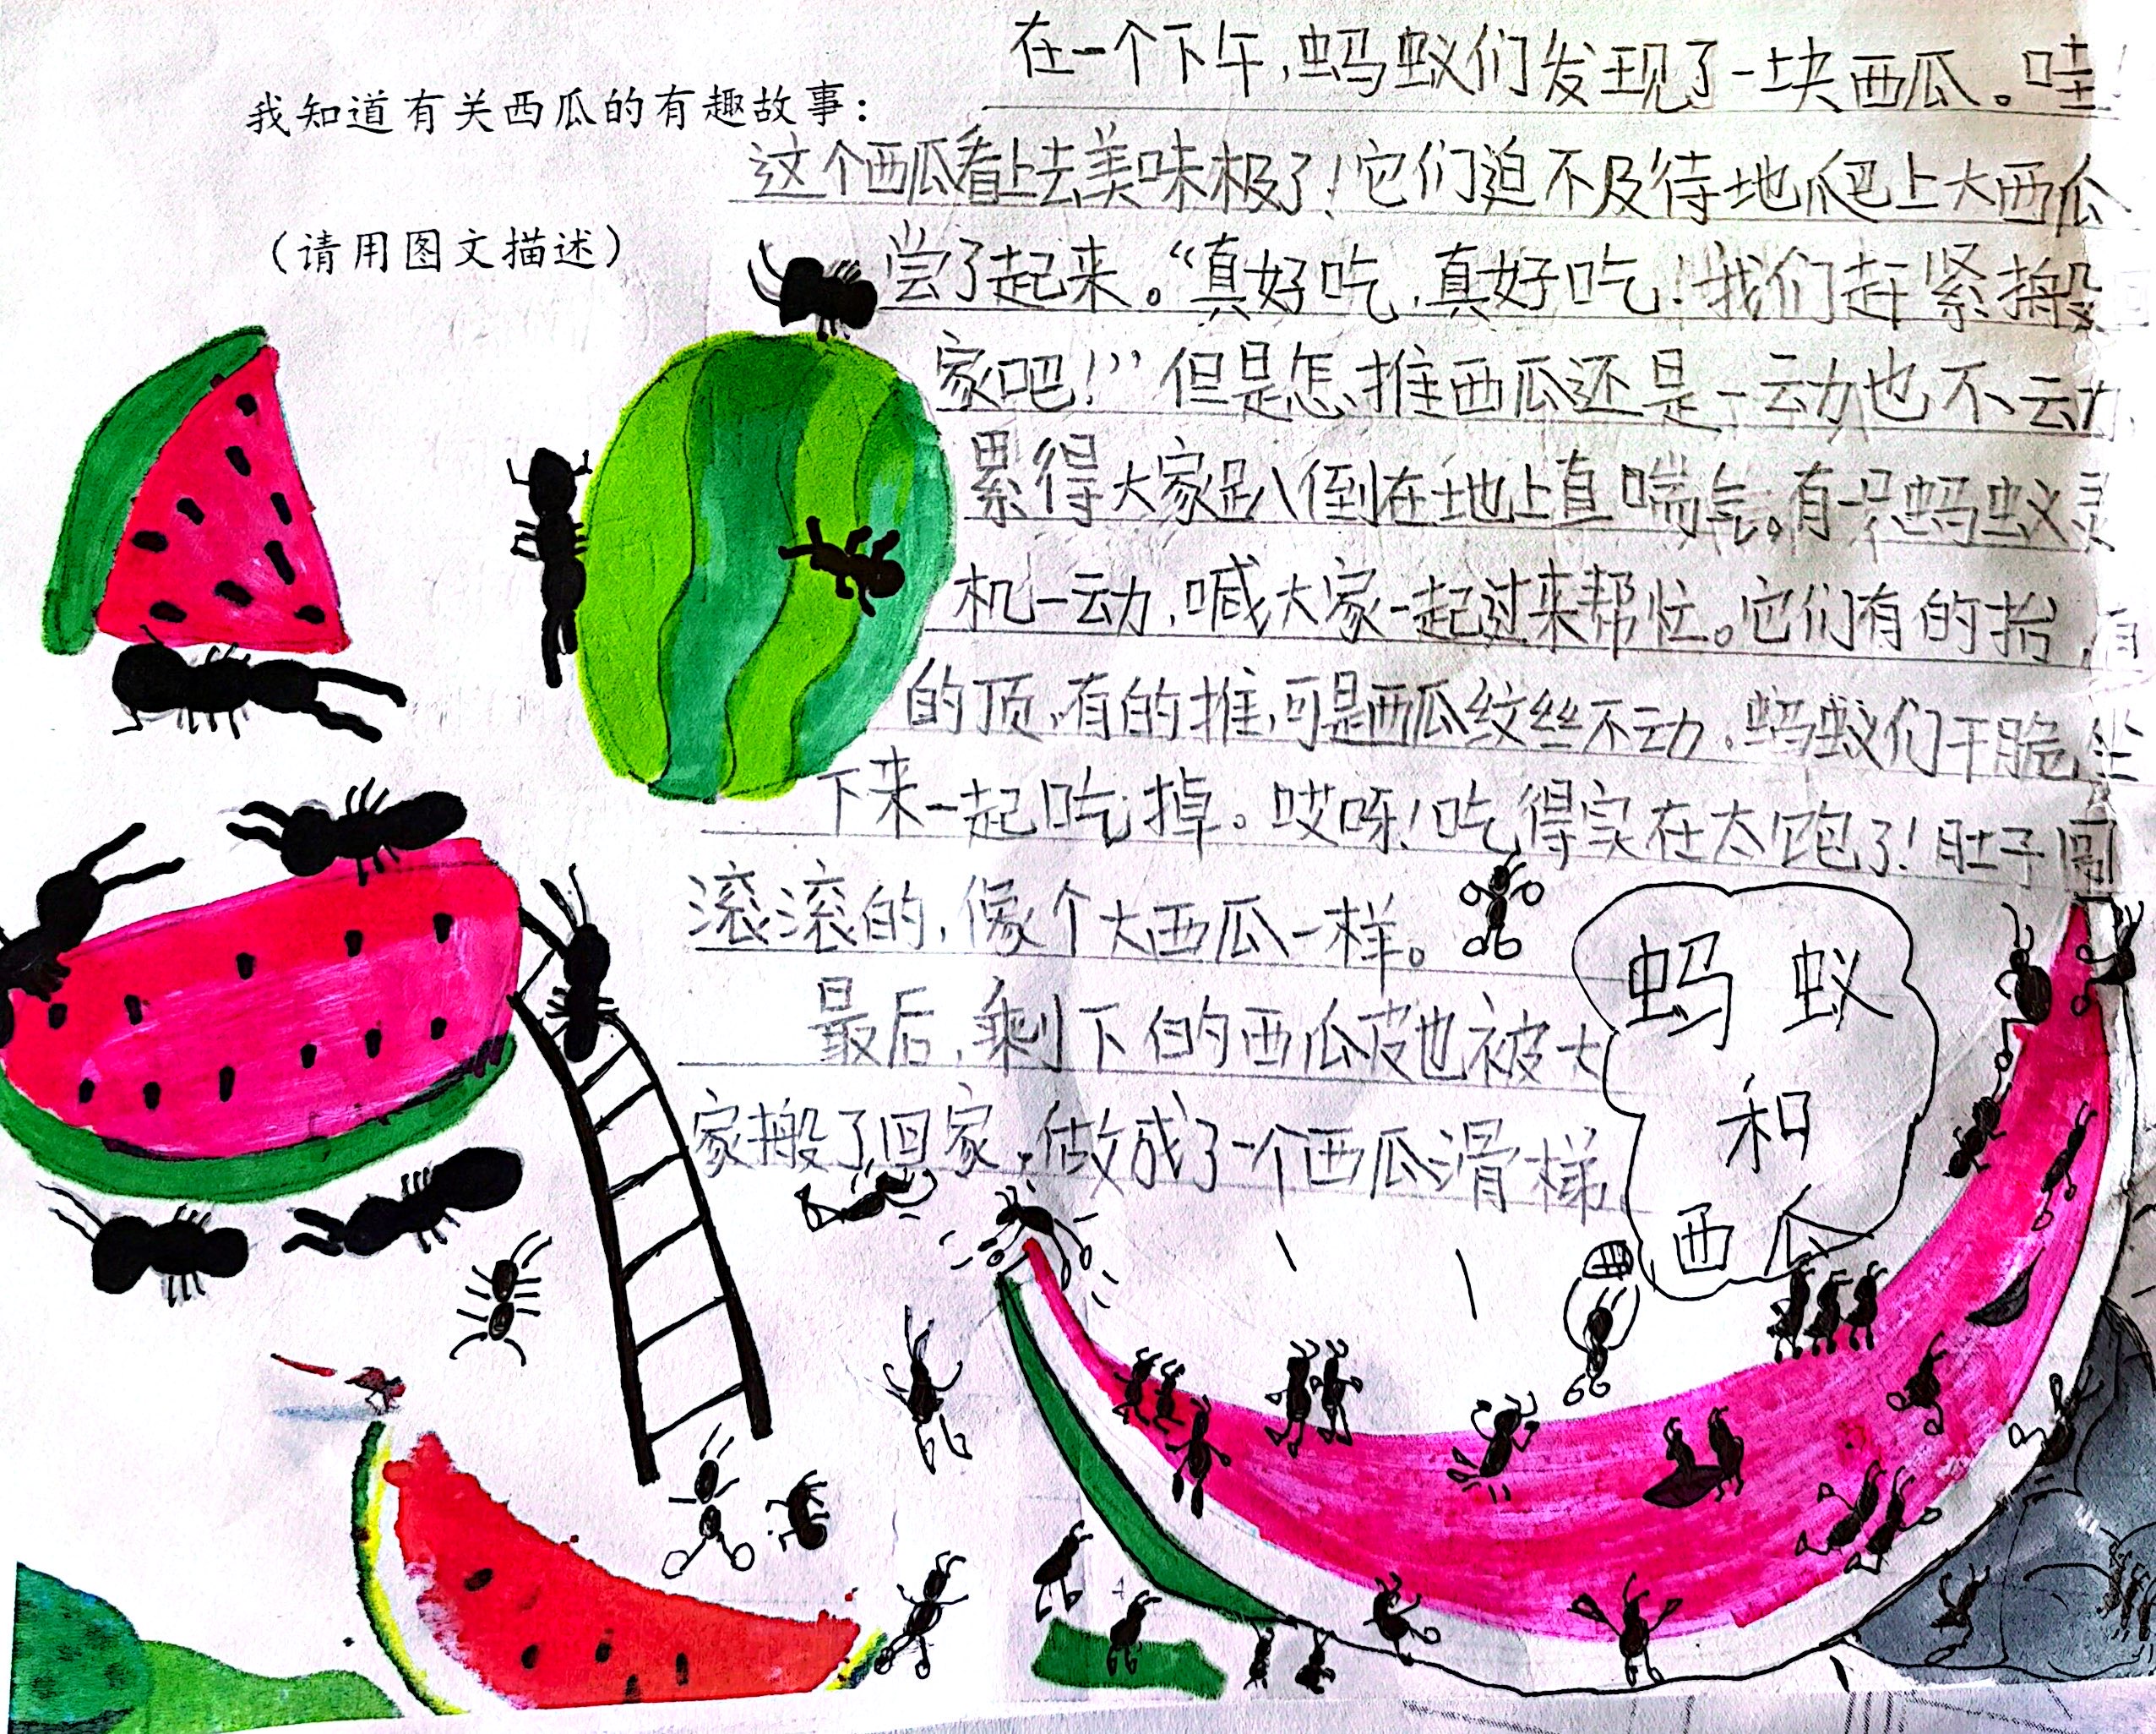 我知道有关西瓜的有趣故事：
（请用图文描述）
在一个下午，蚂蚁们发现了一块西瓜。哇！
这个西瓜看上去美味极了！它们迫不及待地爬上大西瓜
尝了起来。“真好吃，真好吃！我们赶紧搬
家吧！”但是怎推西瓜还是一动也不动，
累得大家趴倒在地上直喘气。有一只蚂蚁灵
机一动，喊大家一起过来帮忙。它们有的抬，有
的顶，有的推，可是西瓜纹丝不动。蚂蚁们干脆坐
下来一起吃掉。哎呀！吃得实在太饱了！肚子圆
滚滚的，像个大西瓜一样。
最后，剩下的西瓜皮也被大
家搬了回家，做成了一个西瓜滑梯
蚂蚁
和
西瓜